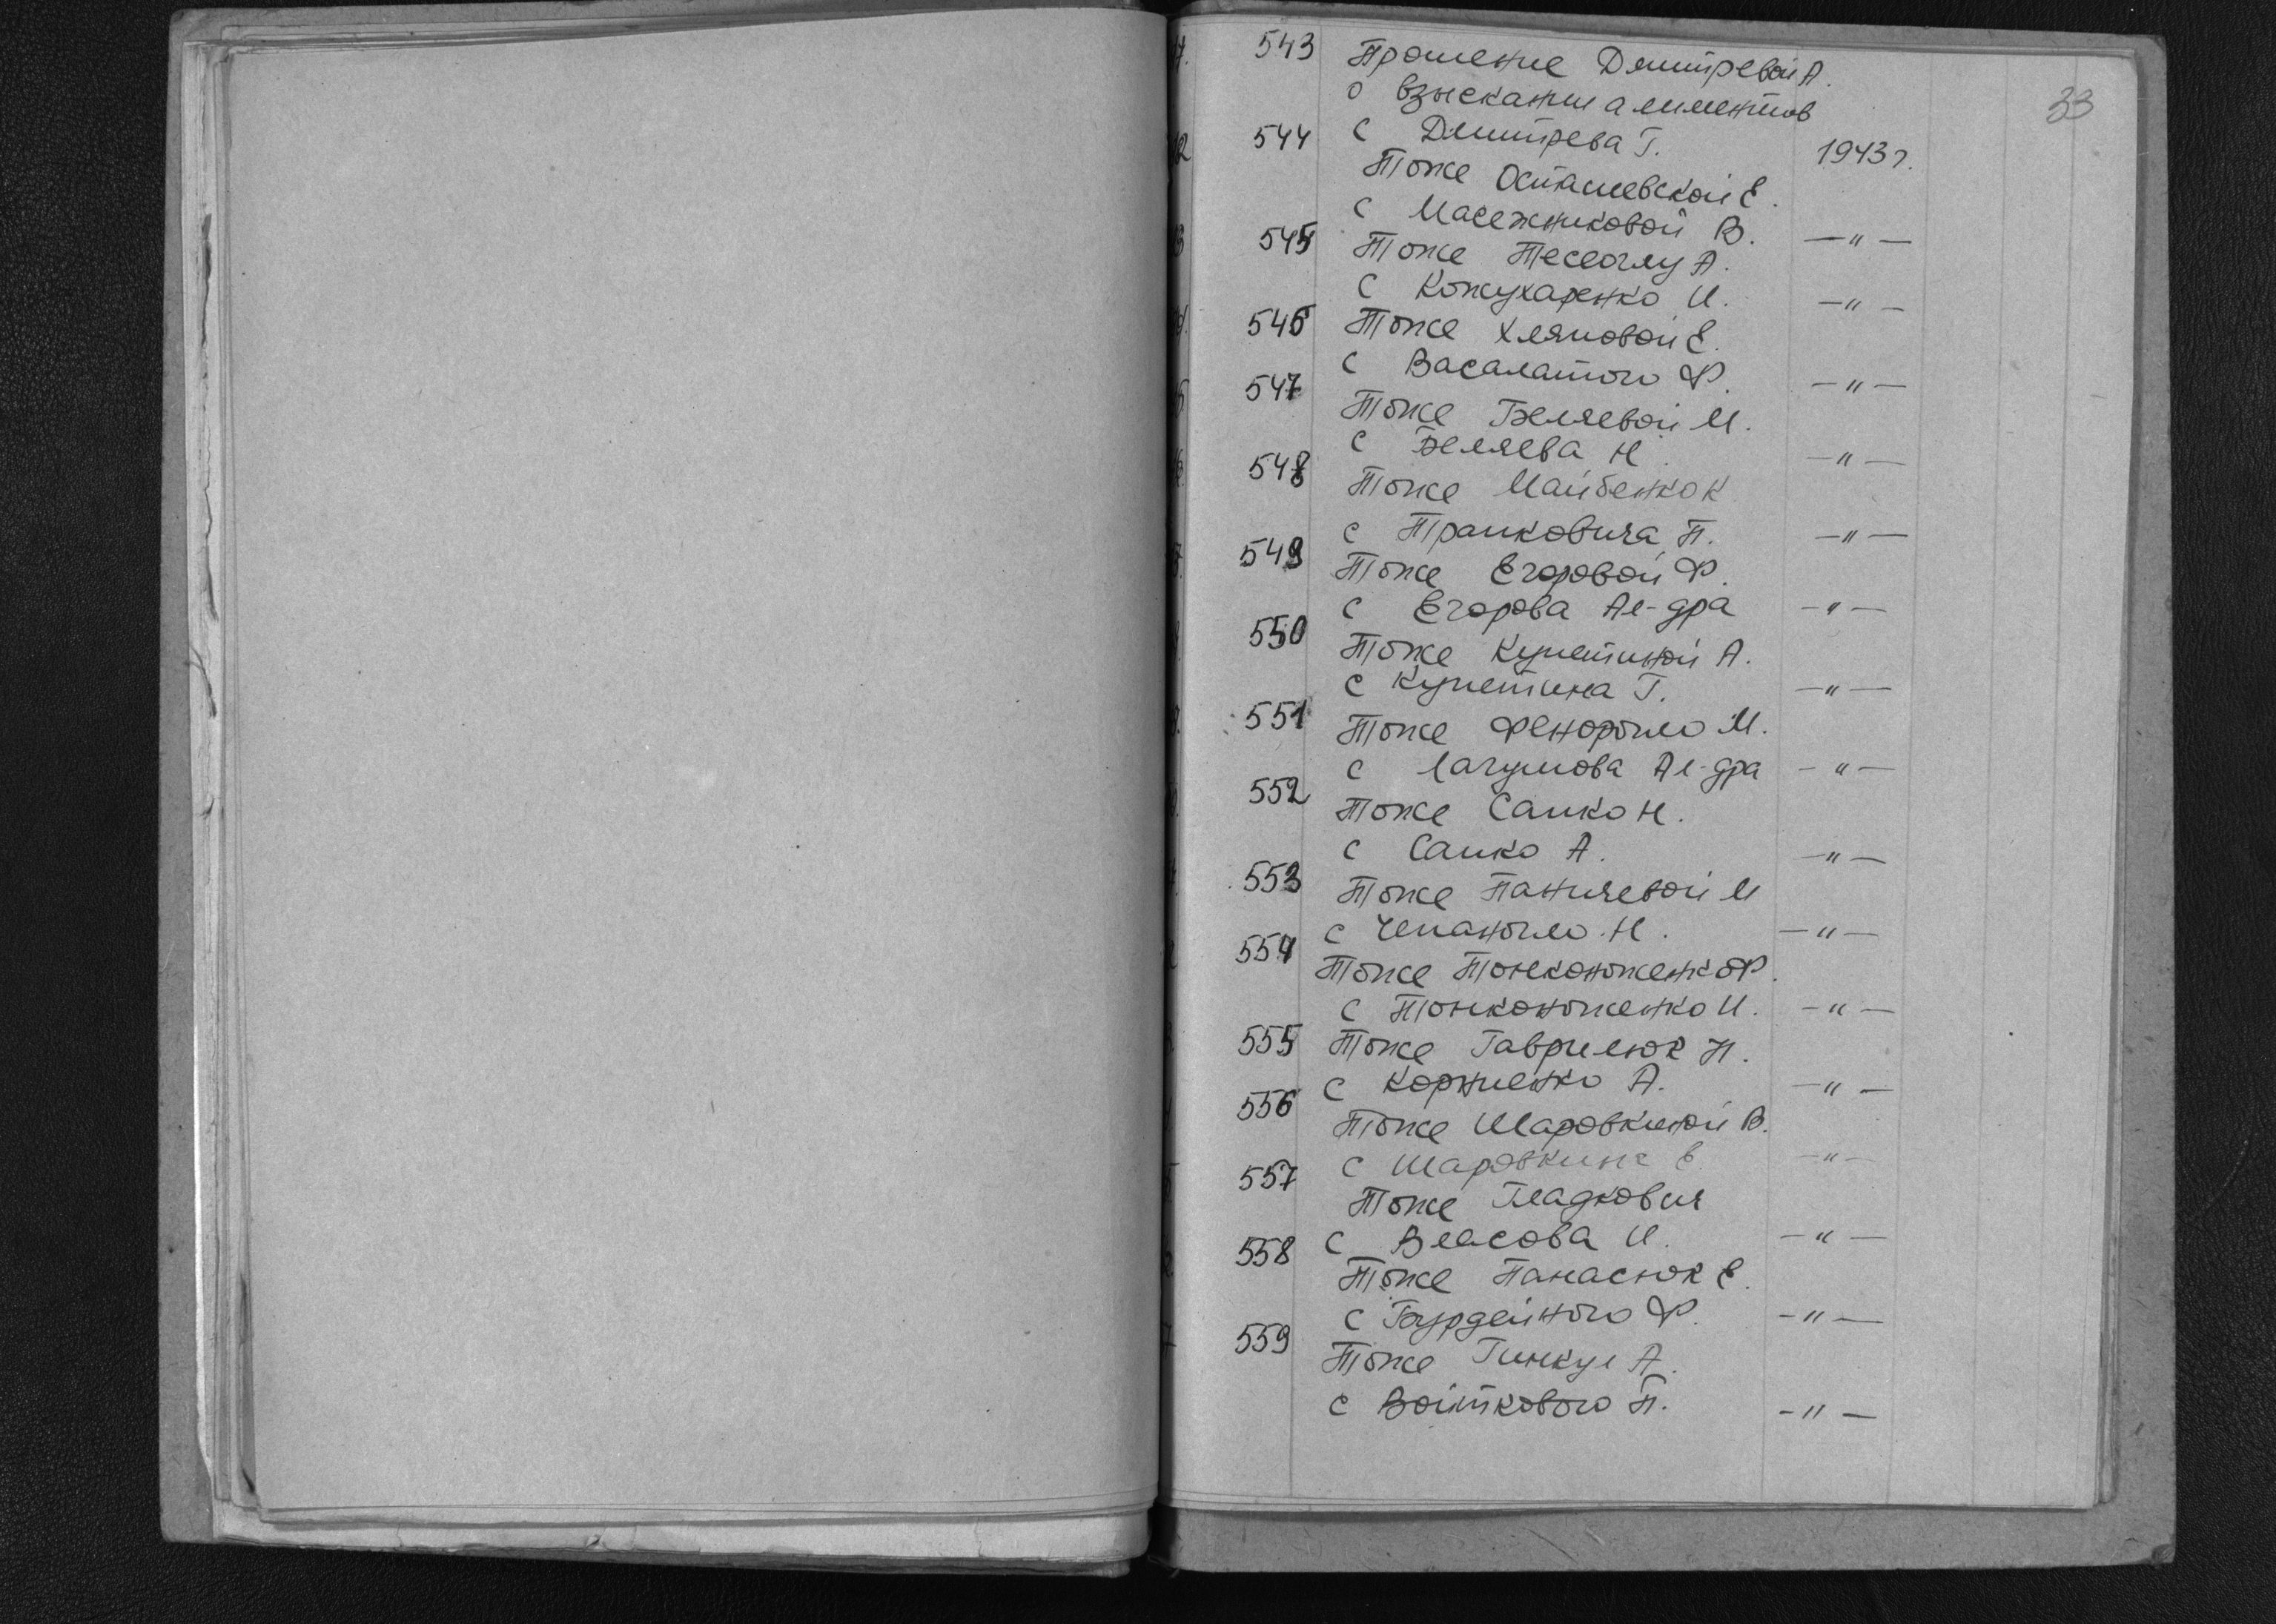 33
543 Прошение Дмитревой А.
о взыскании алиментов
с Дмитрева Г. 1943 г.
544 Тоже Осташевской Е.
с Масежниковой В. —"—
545 Тоже Тесеоглу А.
с Кожухаренко И. —"—
546 Тоже Хляповой Е.
с Васалатого Ф. —"—
547 Тоже Беляевой М.
с Беляева Н. —"—
548 Тоже Майбенко К
с Трашковича П. —"—
549 Тоже Егоровой Ф.
с Егорова Ал-дра —"—
550 Тоже Купетиной А.
с Купетина Г. —"—
551 Тоже М.
с Ал-дра —"—
552 Тоже Сашко Н.
с Сашко А. —"—
553 Тоже Паничевой М
с Н. —"—
554 Тоже Тонконоженко Ф.
с Тонконоженко И. —"—
555 Тоже Гаврилюк Н.
с Корниенко А. —"—
556 Тоже Шаровкиной В.
с Шаровкина Е —"—
557 Тоже Гладкович
с Власова И. —"—
558 Тоже Панасюк Е.
с Бурдейного Ф. —"—
559 Тоже Гинкул А.
с Войткового П. —"—